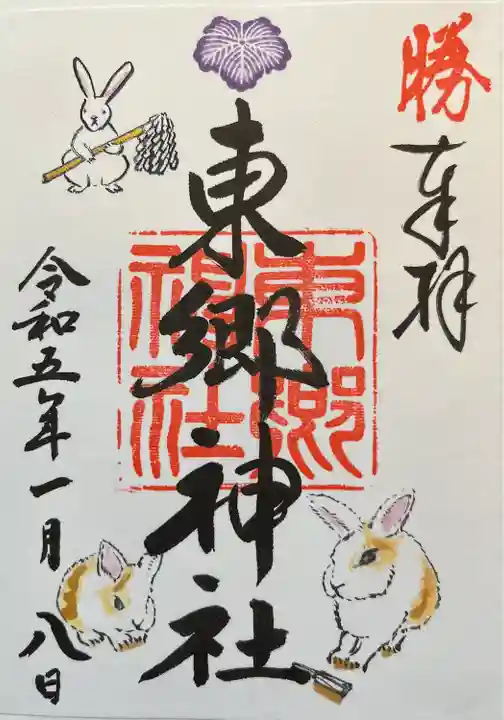 勝
奉拝
東郷神社
東郷神社
令和五年一月八日